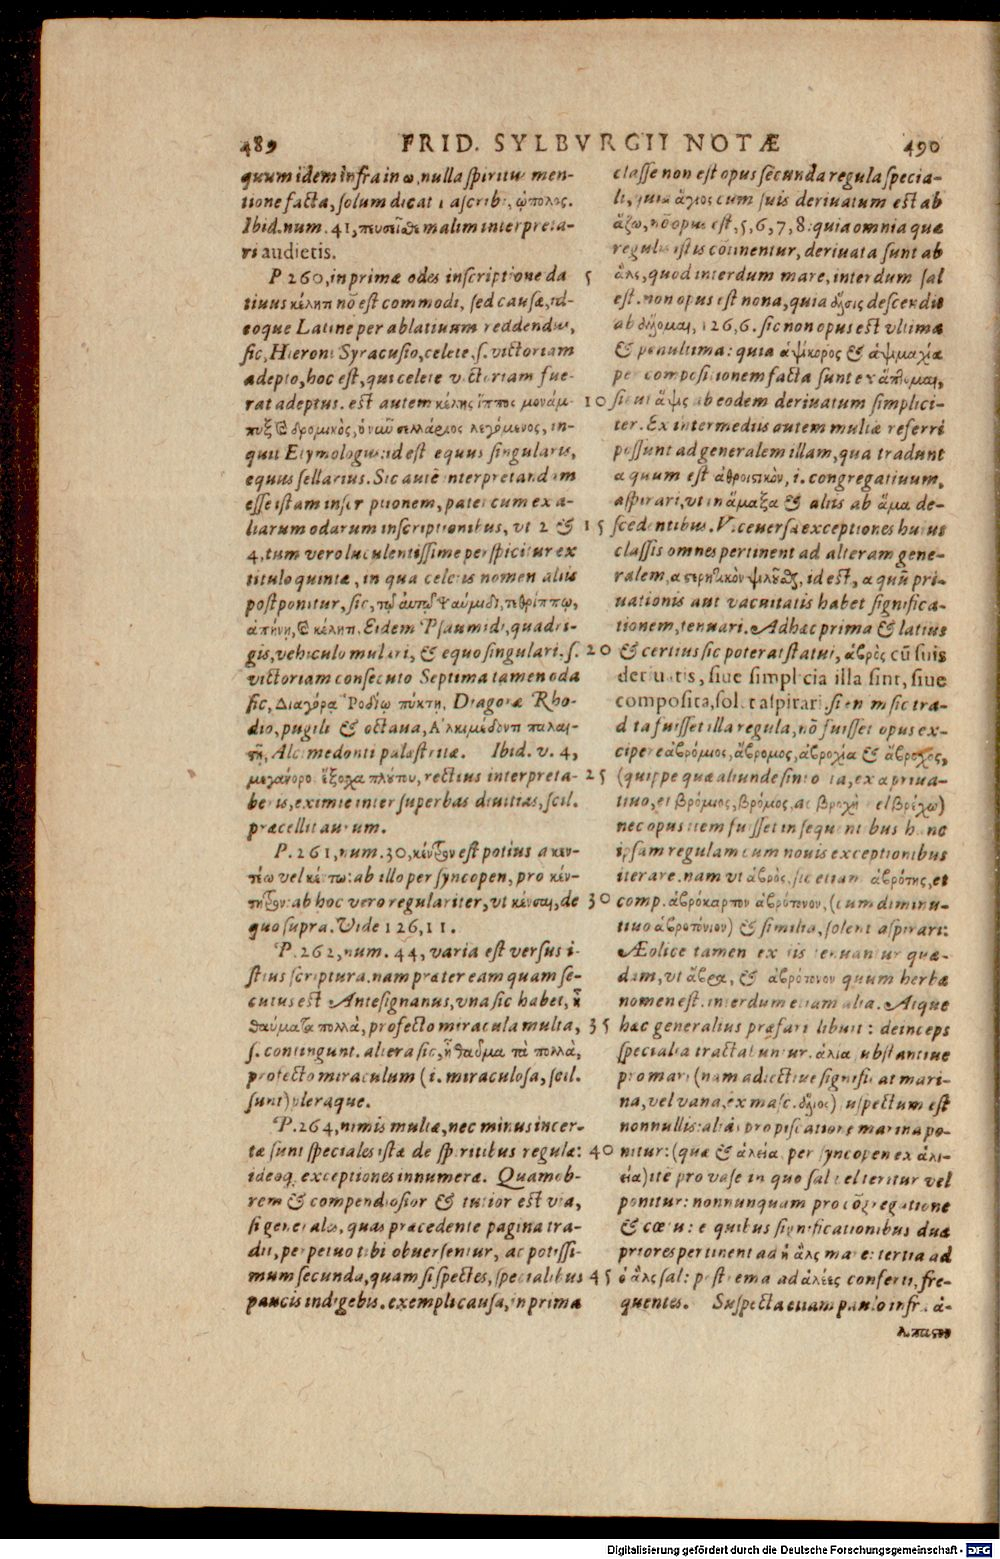 489 FRID. SYLBVRGII NOTÆ 490
quum idem infra in ω, nulla spiritus men-
tione facta, solum dicat ascribi, ᾠπολος.
Ibid. num. 41, πευσεῖσθε malim interpreta-
ri audietis.
P. 260, in primæ odes inscriptione da
tiuus κέλητι nō est commodi, sed causæ, id-
eoque Latine per ablatiuum reddendus,
sic, Hieroni Syracusio, celete, s. victoriam
adepto, hoc est, qui celete victoriam fue-
rat adeptus. est autem κέλης ἵππος μονάμ-
πυξ καὶ δρομικὸς, ὁ νῦν σελλάριος λεγόμενος, in-
quit Etymologus: id est equus singularis,
equus sellarius. Sic autē interpretandam
esse istam inscriptionem, patet cum ex a-
liarum odarum inscriptionibus, vt 2 &
4, tum vero luculentissime perspicitur ex
titulo quintæ, in qua celetis nomen aliis
postponitur, sic, τῷ αὐτῷ Ψαύμιδι, τεθρίππῳ,
ἀπήνῃ, καὶ κέλητι. Eidem Psaumidi, quadri-
gis, vehiculo mulari, & equo singulari. s.
victoriam consecuto Septima tamen oda
sic, Διαγόρᾳ Ῥοδίῳ πύκτῃ, Diagoræ Rho-
dio, pugili & octaua, Ἀλκιμέδοντι παλαι-
τῇ, Alcimedonti palæstritæ. Ibid. v. 4,
μεγάνορος ἔξοχα πλύτου, rectius interpreta-
beris, eximie inter superbas diuitias, scil.
præcellit aurum.
P. 261, num. 30, κέντρον est potius a κεν-
τέω vel κέντω: ab illo per syncopen, pro κέν-
τητρον: ab hoc vero regulariter, vt κένσαι, de
quo supra. Vide 126, 11.
P. 262, num. 44, varia est versus i-
stius scriptura. nam præter eam quam se-
cutus est Antesignanus, vna sic habet, ἦ
θαύματα πολλὰ, profecto miracula multa,
s. contingunt. altera sic, ἦ θαῦμα τὰ πολλὰ,
profecto miraculum (i. miraculosa, scil.
sunt) pleraque.
P. 264, nimis multæ, nec minus incer-
tæ sunt speciales istæ de spiritibus regulæ:
ideoq, exceptiones innumeræ. Quamob-
rem & compendiosior & tutior est via,
si generales, quas præcedente pagina tra-
dit, perpetuo tibi obuersentur, ac potissi-
mum secunda, quam si spectes, specialibus
paucis indigebis. exempli causa, in prima
classe non est opus secunda regula specia-
li, quia ἅγιος cum suis deriuatum est ab
ἅζω, nō opus est, 5, 6, 7, 8: quia omnia quæ
regulis istis continentur, deriuata sunt ab
5 ἃλς, quod interdum mare, interdum sal
est. non opus est nona, quia ἅλσις descendit
ab ἅλλομαι, 126, 6. sic non opus est vltima
& penultima: quia ἁψίκορος & ἁψιμαχία
per compositionem facta sunt ex ἅπτομαι,
10 sicut ἅψις ab eodem deriuatum simplici-
ter. Ex intermediis autem multæ referri
possunt ad generalem illam, qua tradunt
α quum est ἀθροιστικὸν, i. congregatiuum,
aspirari, vt in ἅμαξα & aliis ab ἅμα de-
15 scedentibus. Viceuersa exceptiones huius
classis omnes pertinent ad alteram gene-
ralem, α στερητικὸν ψιλοῦσθαι, id est, α quū pri-
uationis aut vacuitatis habet significa-
tionem, tenuari. Adhæc prima & latius
20 & certius sic poterat statui, ἁβρὸς cū suis
deriuatis, siue simplicia illa sint, siue
composita, solet aspirari. si enim sic tra-
dita fuisset illa regula, nō fuisset opus ex-
cipere ἀβρόμιος, ἄβρομος, ἀβροχία & ἄβροχος,
25 (quippe quæ aliunde sint orta, ex α priua-
tiuo, et βρόμιος, βρόμος, ac βροχὴ vel βρέχω)
nec opus item fuisset in sequentibus hanc
ipsam regulam cum nouis exceptionibus
iterare. nam vt ἁβρὸς, sic etiam ἁβρότης, et
30 comp. ἁβρόκαρπον ἁβρότονον, (cum diminu-
tiuo ἁβροτόνιον) & similia, solent aspirari:
Æolice tamen ex iis tenuantur quæ-
dam, vt ἄβρα, & ἀβρότονον quum herbæ
nomen est. interdum etiam alia. Atque
35 hæc generalius præfari libuit: deinceps
specialia tractabuntur. ἁλία substantiue
pro mari (nam adiectiue significat mari-
na, vel vana, ex masc. ἅλιος) suspectum est
nonnullis: aliàs pro piscatione marina po-
40 nitur: (quæ & ἁλεία per syncopen ex ἁλι-
εία) itē pro vase in quo sal teritur vel
ponitur: nonnunquam pro cōgregatione
& cœtu: e quibus significationibus duæ
priores pertinent ad ἡ ἃλς mare: tertia ad
45 ὁ ἃλς sal: postrema ad ἁλέες conserti, fre-
quentes. Suspecta etiam paulo infra ἀ-